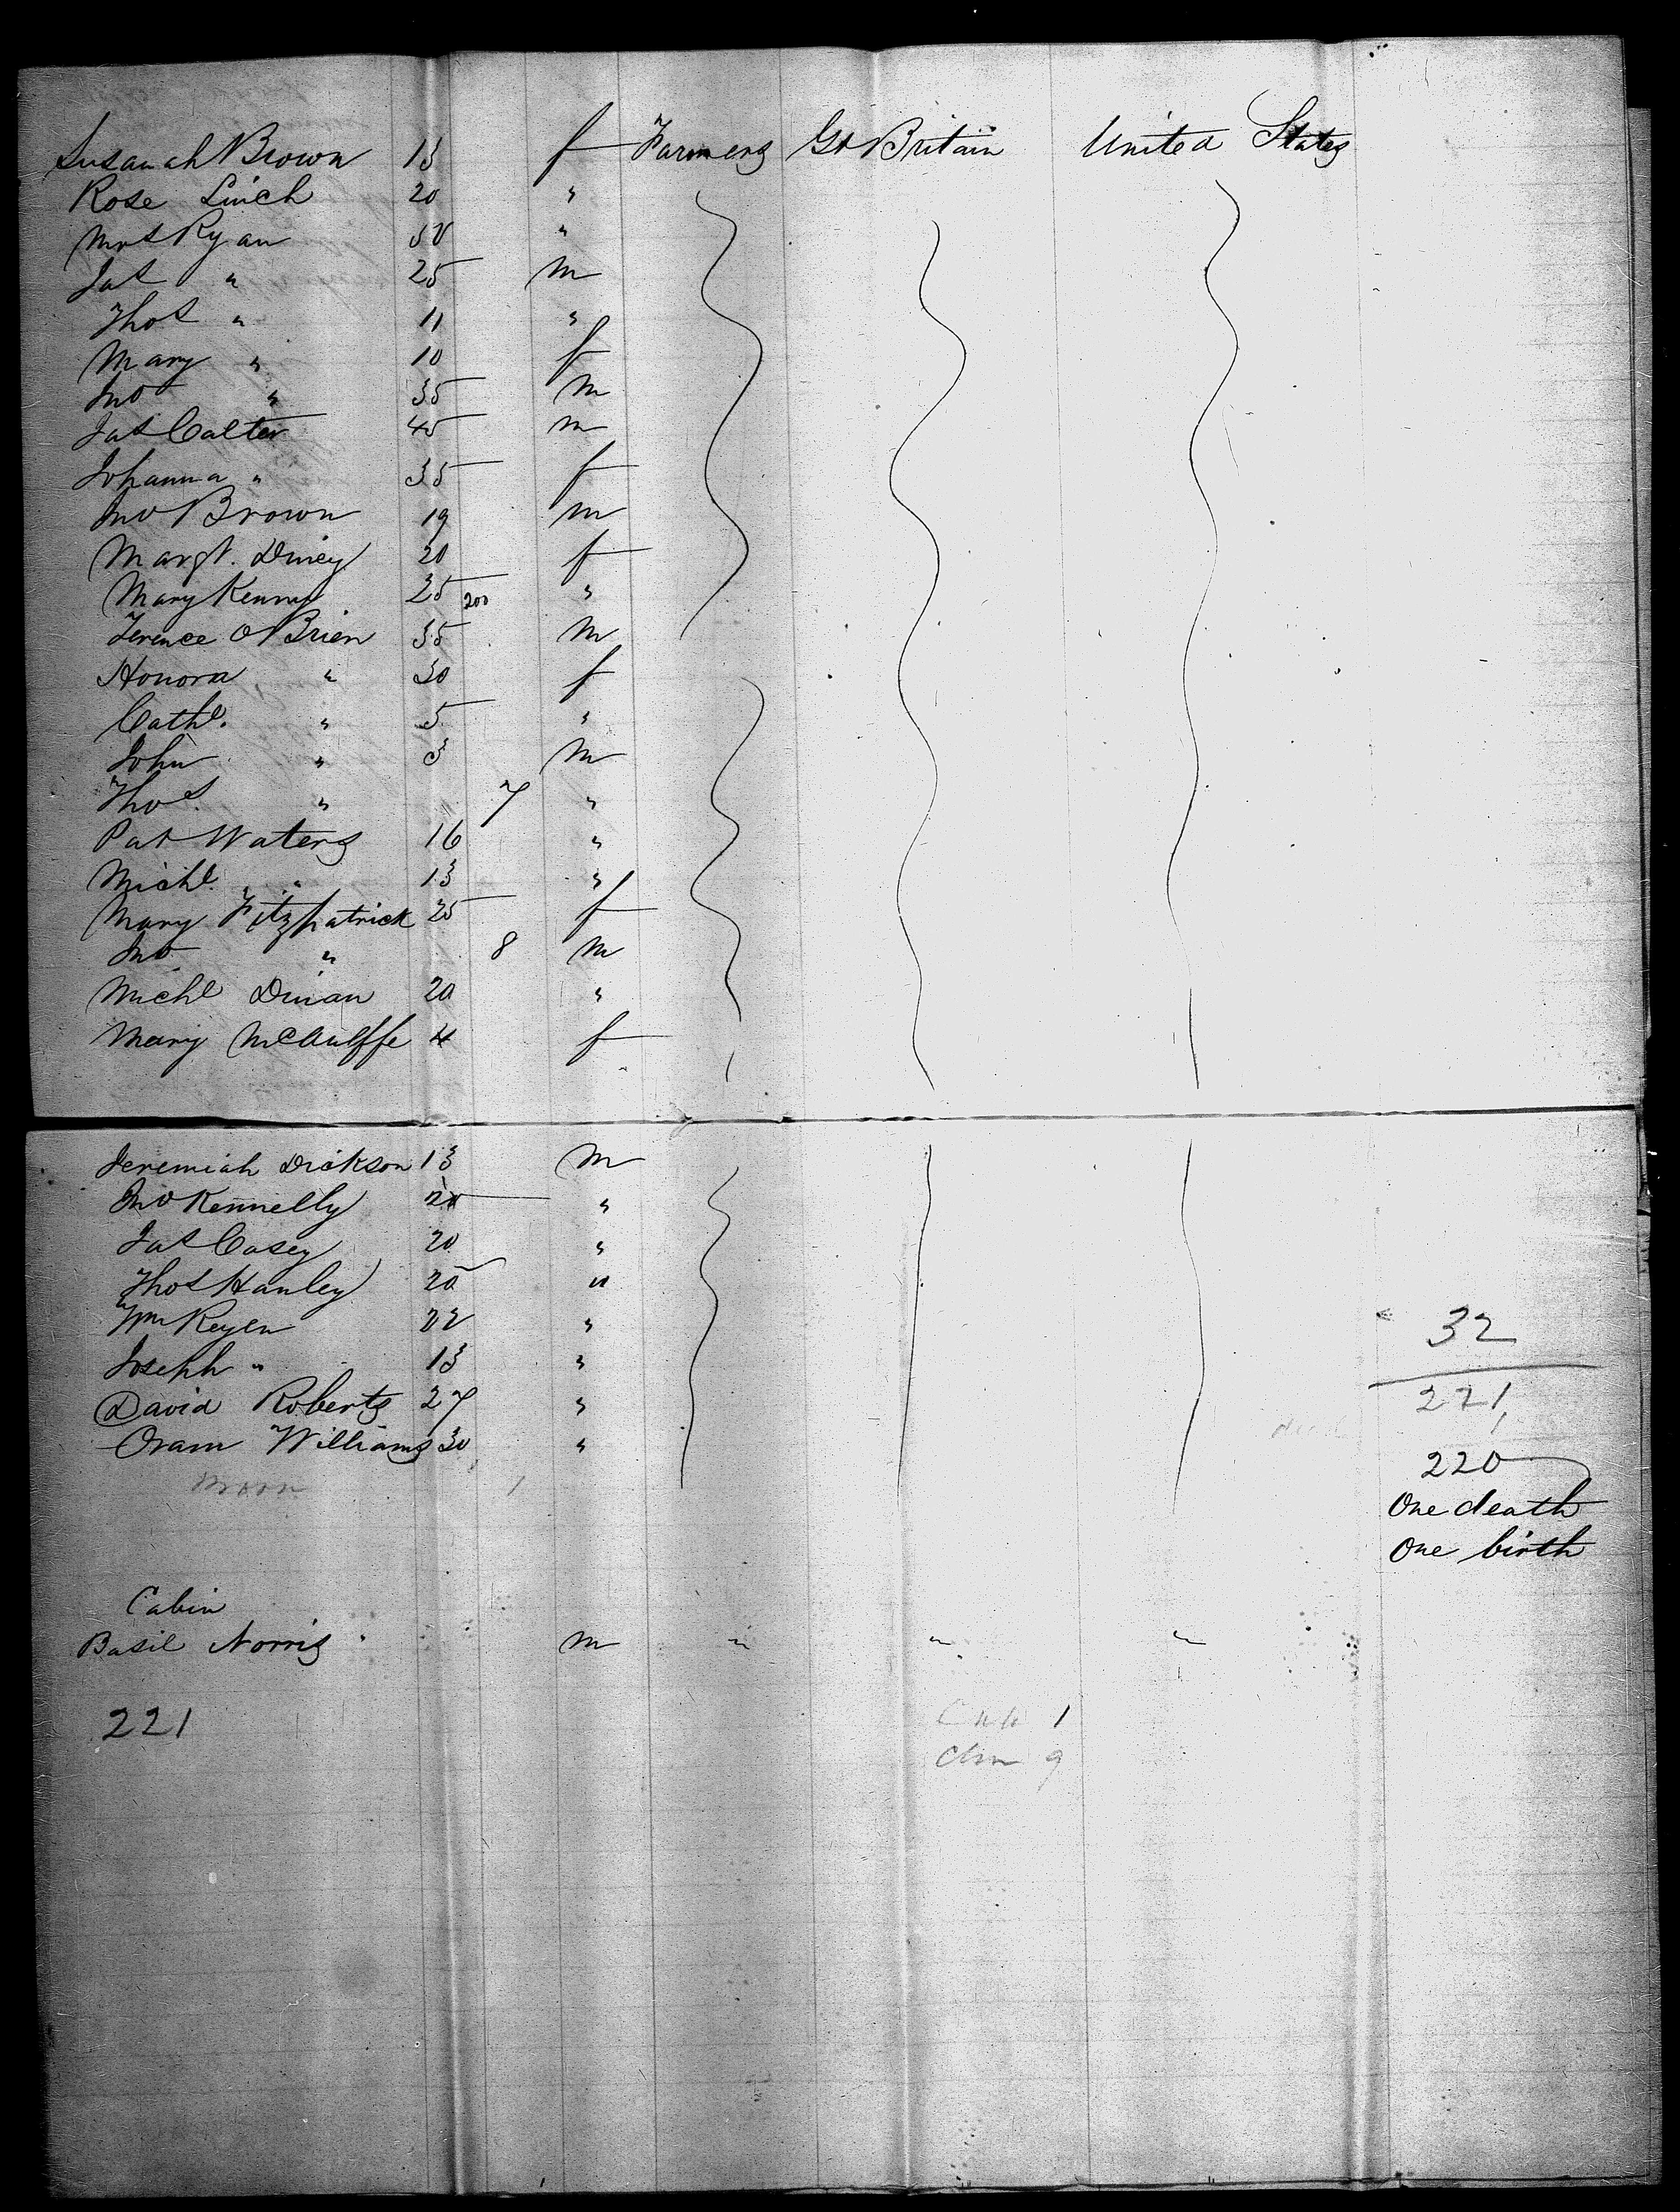 Susanah Brown 13 f Farmers Gt Britain United States
Rose Linch 20 "
Mrs Ryan 50 "
Jas " 25 m
Thos " 11 "
Mary " 10 f
Jno " 35 m
Jas Calter 45 m
Johanna " 35 f
Jno Brown 19 m
Margt. Diney 20 f
Mary Kenny 25 200 "
Terence O Brien 35 m
Honora " 30 f
Cathe. " 5 "
John " 3 m
Thos. " 7 "
Pat Waters 16 "
Michl. " 13 "
Mary Fitzpatrick 25 f
Jno " 8 m
Michl Dinan 20 "
Mary McAulffe 4 f
Jeremiah Dickson 13 m
Jno Kennelly "
Jas Casey 20 "
Thos Hanley 20 "
Wm Reyen 22 "
32
Joseph " 13 "
David Roberts 27 " 221
Oram Williams 30 "
220
One death
One birth
Cabin
Basil Norris " m " " "
221
1
9